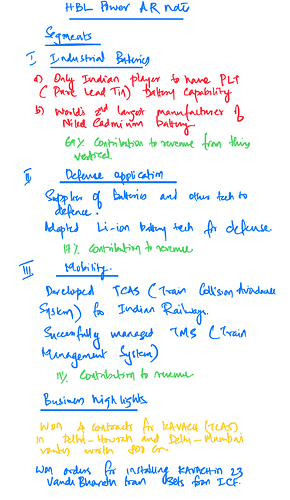 HBL Power AR notes
Segments
I Industrial Batteries
a) Only Indian player to have PLT
(Pure Lead Tin) battery capability
b) World's 2nd largest manufacturer of
Nikel Cadmium battery
69% Contribution to revenue from this
vertical.
II Defense application
Supplier of Batteries and other tech to
defence.
Adopted Li-ion battery tech for defense
17% Contribution to revenue
III Mobility.
Developed TCAS (Train Collision Avoidance
System) for Indian Railways.
Successfully managed TMS (Train
Management System)
11% Contribution to revenue
Business highlights
Won 4 contracts for KAVACH (TCAS)
in Delhi-Howrah and Delhi-Mumbai
routes worth 800 Cr
Won orders for installing KAVACH in 23
Vande Bharath train sets from ICF.